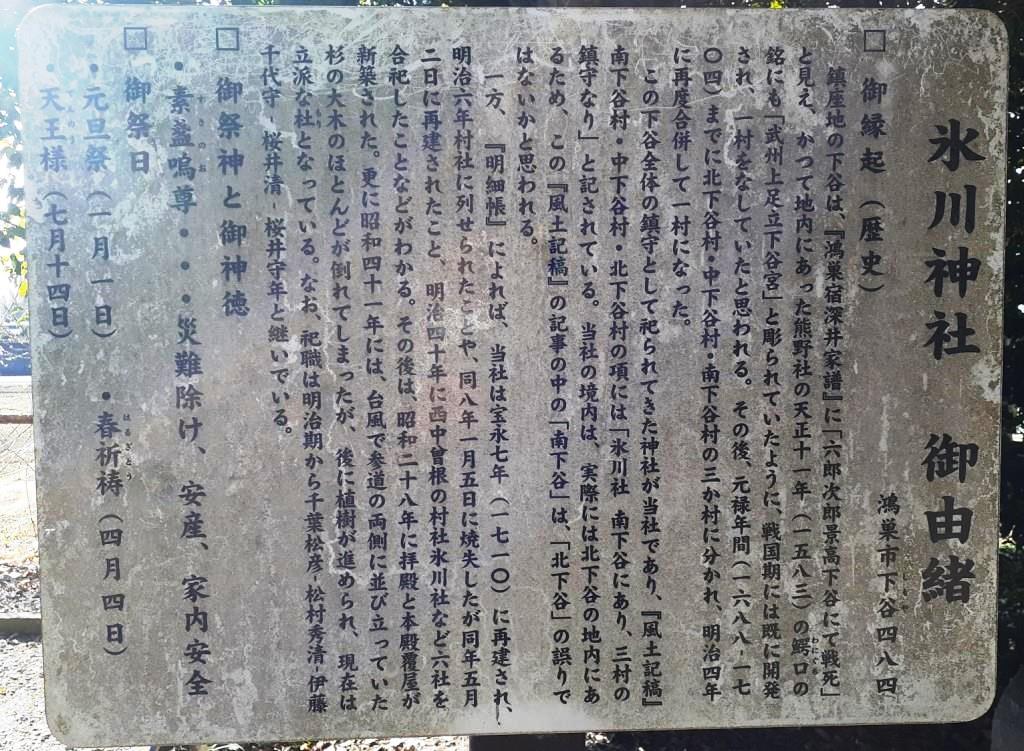 氷川神社 御由緒
鴻巣市下谷四八四
□ 御縁起（歴史）
鎮座地の下谷は、『鴻巣宿深井家譜』に「六郎次郎景高下谷にて戦死」
と見え、かつて地内にあった熊野社の天正十一年（一五八三）の鰐口の
銘にも「武州上足立下谷宮」と彫られていたように、戦国期には既に開発
され、一村をなしていたと思われる。その後、元禄年間（一六八八-一七
〇四）までに北下谷村・中下谷村・南下谷村の三か村に分かれ、明治四年
に再度合併して一村になった。
この下谷全体の鎮守として祀られてきた神社が当社であり、『風土記稿』
南下谷村・中下谷村・北下谷村の項には「氷川社 南下谷にあり、三村の
鎮守なり」と記されている。当社の境内は、実際には北下谷の地内にあ
るため、この『風土記稿』の記事の中の「南下谷」は、「北下谷」の誤りで
はないかと思われる。
一方、『明細帳』によれば、当社は宝永七年（一七一〇）に再建され、
明治六年村社に列せられたことや、同八年一月五日に焼失したが同年五月
二日に再建されたこと、明治四十年に西中曽根の村社氷川社など六社を
合祀したことなどがわかる。その後は、昭和二十八年に拝殿と本殿覆屋が
新築された。更に昭和四十一年には、台風で参道の両側に並び立っていた
杉の大木のほとんどが倒れてしまったが、後に植樹が進められ、現在は
立派な社となっている。なお、祀職は明治期から千葉松彦-松村秀清-伊藤
千代守-桜井清-桜井守年と継いでいる。
□ 御祭神と御神徳
・素盞嗚尊・・・災難除け、安産、家内安全
□ 御祭日
・元旦祭（一月一日） ・春祈祷（四月四日）
・天王様（七月十四日）